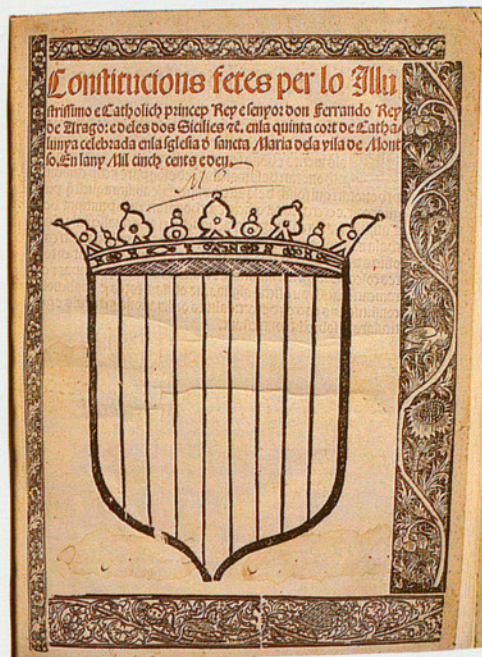 Constitucions fetes per lo Illu
strissimo e Catholich princep Rey e senyor don Ferrando Rey
de Arago: e deles dos Sicilies ⁊c. enla quinta cort de Catha-
lunya celebrada enla sglesia d̄ sancta Maria dela vila de Mont
so. En lany Mil cinch cents e deu.